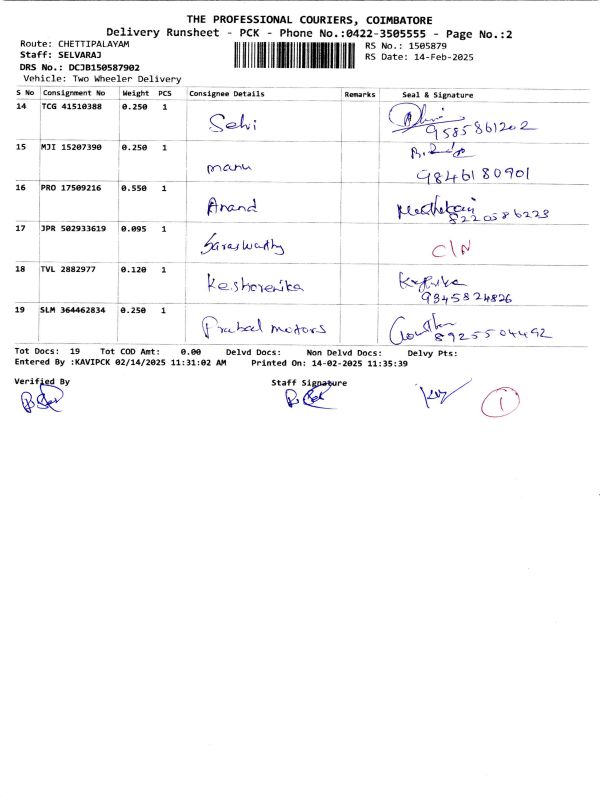 THE PROFESSIONAL COURIERS, COIMBATORE
Delivery Runsheet - PCK - Phone No.:0422-3505555 - Page No.:2
Route: CHETTIPALAYAM RS No.: 1505879
Staff: SELVARAJ RS Date: 14-Feb-2025
DRS No.: DCJB150587902
Vehicle: Two Wheeler Delivery
S No Consignment No Weight PCS Consignee Details Remarks Seal & Signature
14 TCG 41510388 0.250 1
Selvi 9585861202
15 MJI 15207390 0.250 1
manu 9846180901
16 PRO 17509216 0.550 1
Anand 8220586223
17 JPR 502933619 0.095 1
Saraswathy C/N
18 TVL 2882977 0.120 1
Keshorenika 9345824826
19 SLM 364462834 0.250 1
Prabal motors 8925504492
Tot Docs: 19 Tot COD Amt: 0.00 Delvd Docs: Non Delvd Docs: Delvy Pts:
Entered By :KAVIPCK 02/14/2025 11:31:02 AM Printed On: 14-02-2025 11:35:39
Verified By Staff Signature
1